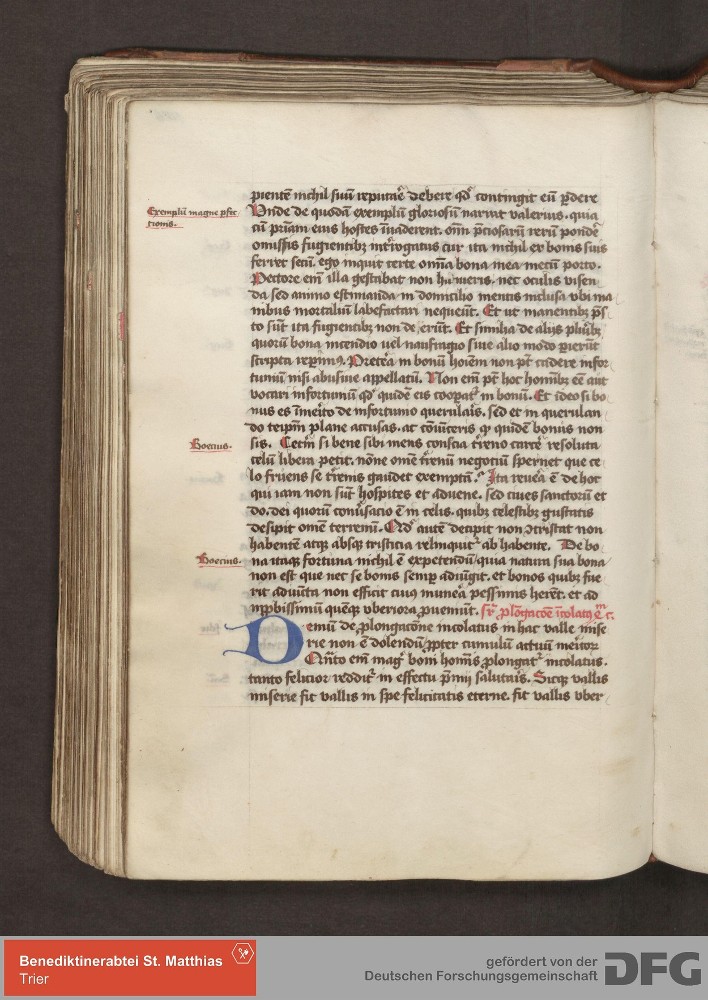 pientē nichil suū reputaē debere qd' contingit eū ꝑdere
Exemplū magne ꝑfec
tionis.
Vnde de quodā exemplū gloriosū narrat valerius. quia
cū pr̄iam eius hostes īuaderent. om̄i p̄ciosarū rerū pondē
omissis fugientibꝫ int̄rogatus cur ita nichil ex bonis suis
ferret secū. ego inquit certe om̄ia bona mea mecū porto.
Pectore em̄ illa gestabat non humeris. nec oculis visen
da sed animo estimanda in domicilio mentis inclusa vbi ma
nibus mortaliū labefactari nequeūt. Et ut manentibꝫ p̄s
to sūt ita fugientibꝫ non deserūt. Et similia de alijs pluribꝫ
quorū bona incendio uel naufragio siue alio modo ꝑierūt
scripta reperimꝰ. Preterea in bonū hoīem non pt̄ cadere infor
tuniū nisi abusiue appellatū. Non em̄ pt̄ hoc homībꝫ eē aut
vocari infortuniū qd' quidē eis cooꝑat᷑ in bonū. Et ideo si bo
nus es īmeīto de infortunio querularis. sed et in querulan
do teipm̄ plane accusas. ac cōuīceris ꝙ quidē bonus non
sis. Cetm̄ si bene sibi mens conscia t̄reno carcē resoluta
Boecius.
celū libera petit. nōne omē t̄renū negociū spernet que ce
lo fruens se t̄renis gaudet exemptā. Ita reuēa ē de hoc
qui iam non sūt hospites et aduene. sed ciues sanctorū et
do. dei quorū conūsacio ē in celis. quibꝫ celestibꝫ gustatis
desipit omē terrenū. Qd' autē decipit non ꝯtristat non
habentē atqꝫ absqꝫ tristicia relinquit᷑ ab habente. De bo
Boecius.
na itaqꝫ fortuna nichil ē expetendū quia natura sua bona
non est que nec se bonis semꝑ adiūgit. et bonos quibꝫ fue
rit adiūcta non efficit cuiꝰ munēa pessimis herēt. et ad
īꝓbissimū quēqꝫ vberiora ꝓueniūt.
Demū de ꝓlongacōne incolatus in hac valle mise
rie non ē dolendū ꝓpter cumulū actuū meritor
Qn̄to em̄ magꝭ boni homīs ꝓlongat᷑ incolatus.
tanto felicior reddit᷑ in effectu p̄mij salutaīs. Sicqꝫ vallis
miserie fit vallis in spe felicitatis eterne. fit vallis vber
Benediktinerabtei St. Matthias
Trier
gefördert von der
Deutschen Forschungsgemeinschaft
DFG